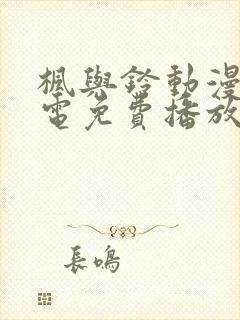 楓與鈴動漫
電免費播放
長鳴